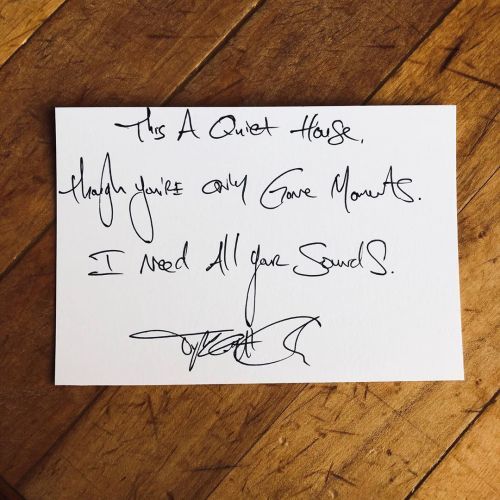 This A Quiet House,
though you're only Gone Moments.
I Need All your Sounds.